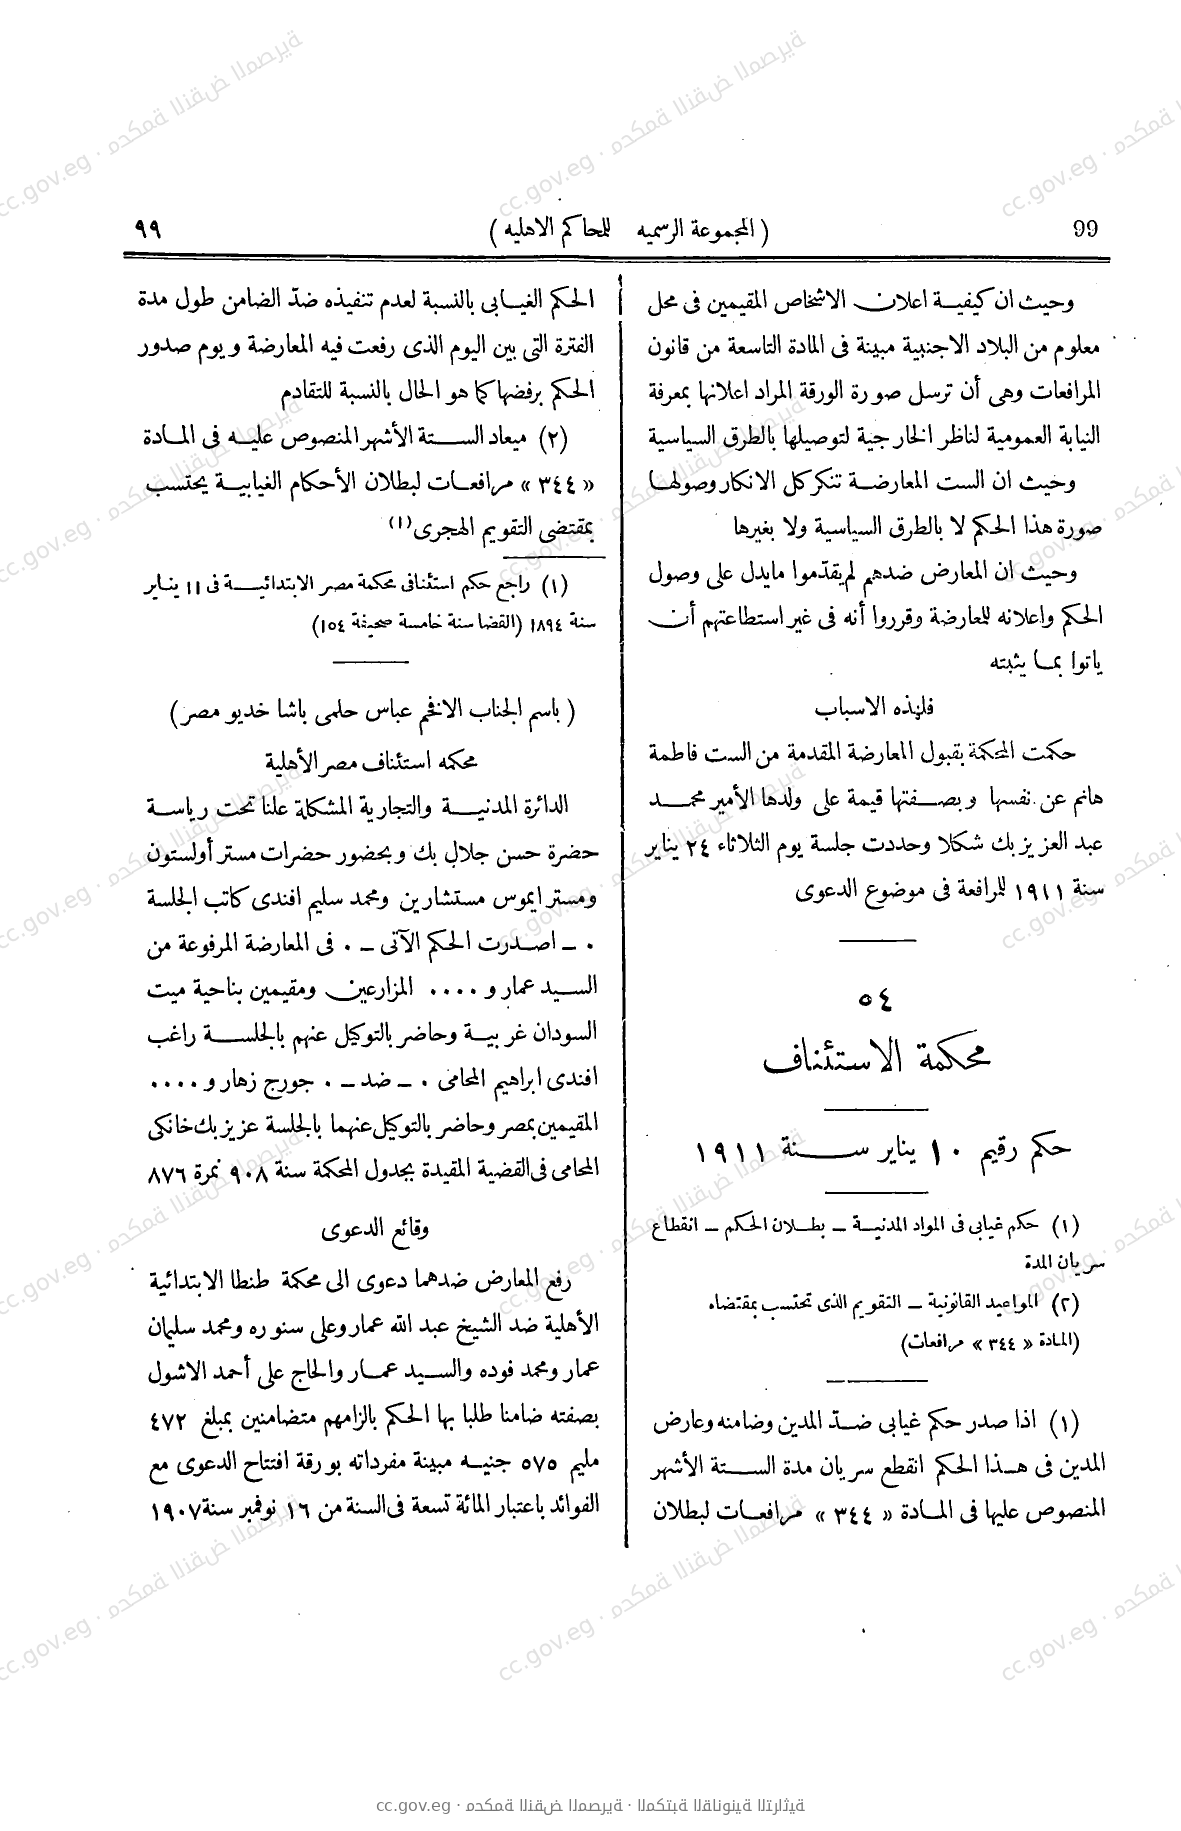 99
( المجموعة الرسميه للمحاكم الاهليه )
٩٩
وحيث ان كيفية اعلان الاشخاص المقيمين فى محل
معلوم من البلاد الاجنبية مبينة فى المادة التاسعة من قانون
المرافعات وهى أن ترسل صورة الورقة المراد اعلانها بمعرفة
النيابة العمومية لناظر الخارجية لتوصيلها بالطرق السياسية
وحيث ان الست المعارضة تنكر كل الانكار وصولها
صورة هذا الحكم لا بالطرق السياسية ولا بغيرها
وحيث ان المعارض ضدهم لم يقدّموا مايدل على وصول
الحكم واعلانه للمعارضة وقرروا أنه فى غير استطاعتهم أن
ياتوا بما يثبته
فلهذه الاسباب
حكمت المحكمة بقبول المعارضة المقدمة من الست فاطمة
هانم عن نفسها وبصفتها قيمة على ولدها الأمير محمد
عبد العزيز بك شكلا وحددت جلسة يوم الثلاثاء ٢٤ يناير
سنة ١٩١١ للمرافعة فى موضوع الدعوى
٥٤
محكمة الاستئناف
حكم رقيم ١٠ يناير سنة ١٩١١
(١) حكم غيابى فى المواد المدنية – بطلان الحكم – انقطاع
سريان المدة
(٢) المواعيد القانونية – التقويم الذى تحتسب بمقتضاه
(المادة « ٣٤٤ » مرافعات)
(١) اذا صدر حكم غيابى ضدّ المدين وضامنه وعارض
المدين فى هذا الحكم انقطع سريان مدة الستة الأشهر
المنصوص عليها فى المادة « ٣٤٤ » مرافعات لبطلان
الحكم الغيابى بالنسبة لعدم تنفيذه ضدّ الضامن طول مدة
الفترة التى بين اليوم الذى رفعت فيه المعارضة ويوم صدور
الحكم برفضها كما هو الحال بالنسبة للتقادم
(٢) ميعاد الستة الأشهر المنصوص عليه فى المادة
« ٣٤٤ » مرافعات لبطلان الأحكام الغيابية يحتسب
بمقتضى التقويم الهجرى(١)
(١) راجع حكم استئنافى محكمة مصر الابتدائية فى ١١ يناير
سنة ١٨٩٤ (القضا سنة خامسة صحيفة ١٥٤)
( باسم الجناب الافخم عباس حلمى باشا خديو مصر )
محكمه استئناف مصر الأهلية
الدائرة المدنية والتجارية المشكلة علنا تحت رياسة
حضرة حسن جلال بك وبحضور حضرات مستر أولستون
ومستر ايموس مستشارين ومحمد سليم افندى كاتب الجلسة
٠ – اصدرت الحكم الآتى – ٠ فى المعارضة المرفوعة من
السيد عمار و ٠٠٠٠ المزارعين ومقيمين بناحية ميت
السودان غربية وحاضر بالتوكيل عنهم بالجلسة راغب
افندى ابراهيم المحامى ٠ – ضد – ٠ جورج زهار و ٠٠٠٠
المقيمين بمصر وحاضر بالتوكيل عنهما بالجلسة عزيز بك خانكى
المحامى فى القضية المقيدة بجدول المحكمة سنة ٩٠٨ نمرة ٨٧٦
وقائع الدعوى
رفع المعارض ضدهما دعوى الى محكمة طنطا الابتدائية
الأهلية ضد الشيخ عبد الله عمار وعلى سنوره ومحمد سليمان
عمار ومحمد فوده والسيد عمار والحاج على أحمد الاشول
بصفته ضامنا طلبا بها الحكم بالزامهم متضامنين بمبلغ ٤٧٢
مليم ٥٧٥ جنيه مبينة مفرداته بورقة افتتاح الدعوى مع
الفوائد باعتبار المائة تسعة فى السنة من ١٦ نوفمبر سنة ١٩٠٧
cc.gov.eg · محكمة النقض المصرية · المكتبة القانونية التراثية